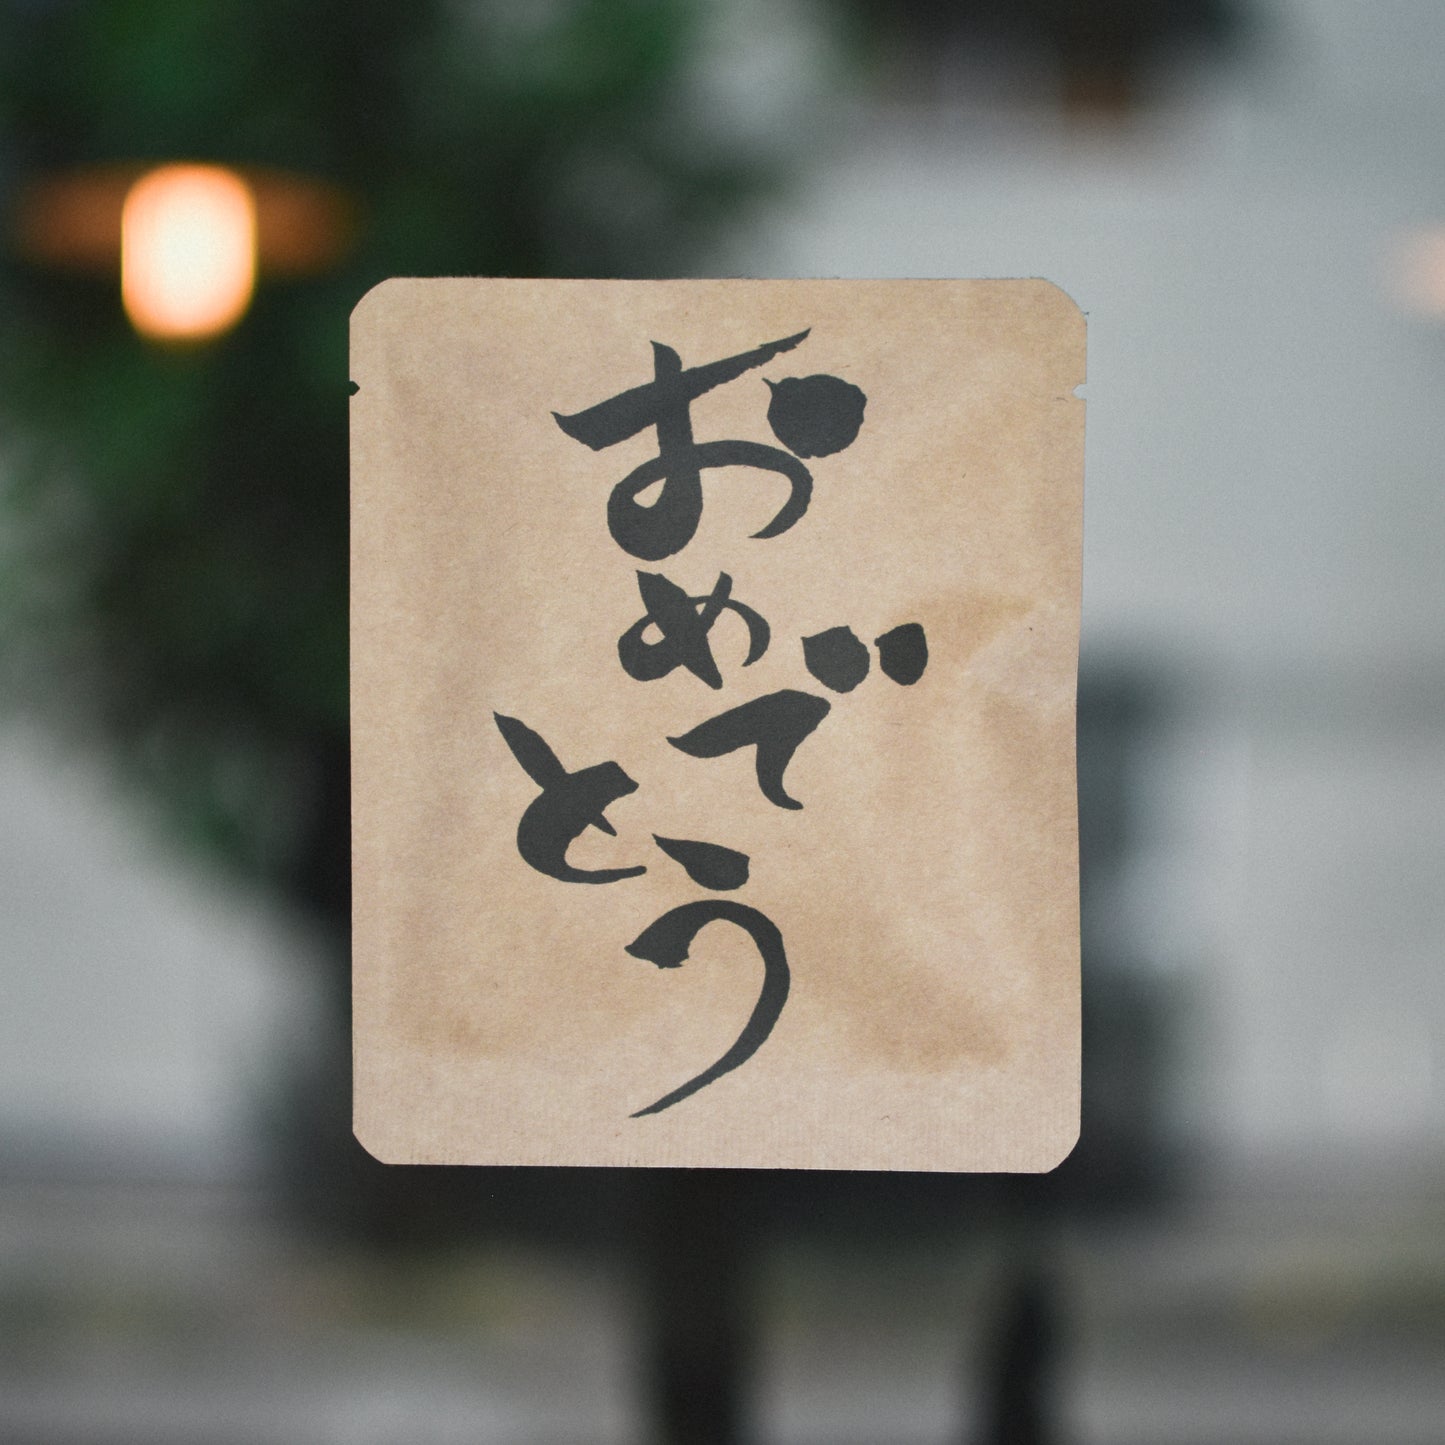 おめで
とう